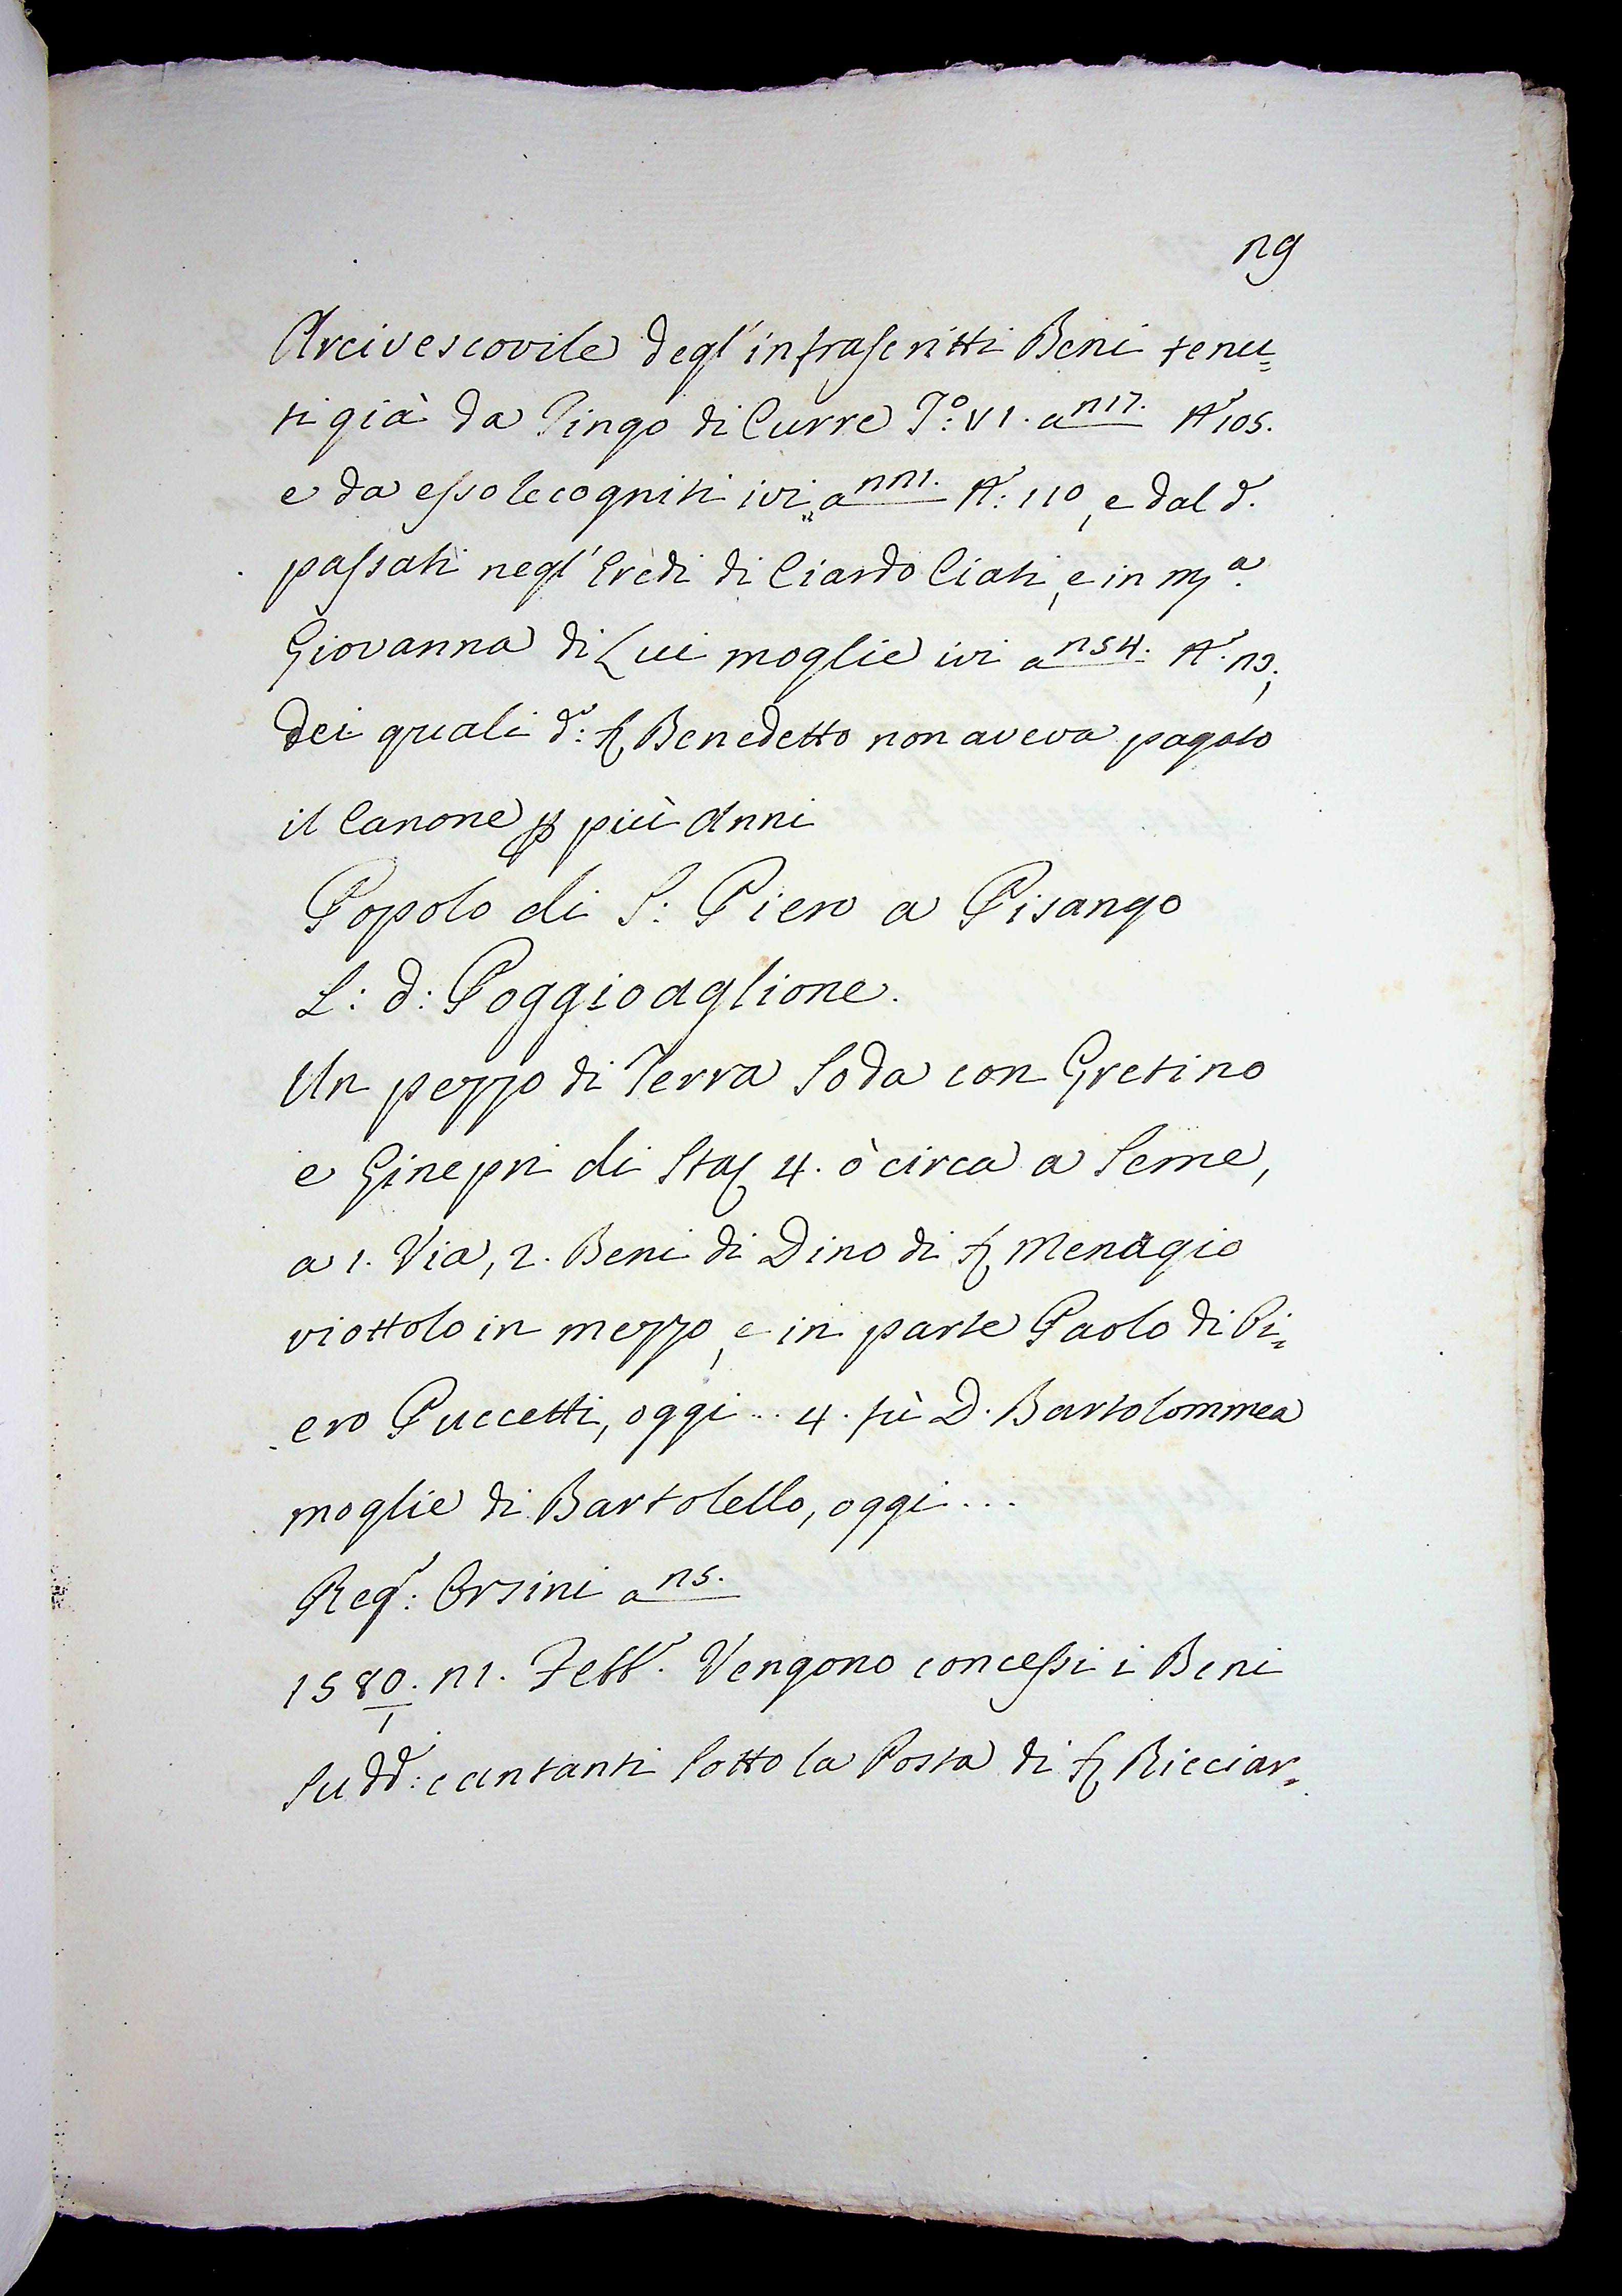 29
Arcivescovile degl'infrascritti Beni tenu=
ti già da Pingo di Curre T.º VI. a 217. N.º 105.
e da esso recogniti ivi a 221. N.º 110, e dal d.º
passati negl'Eredi di Ciardo Ciati, e in m.ª
Giovanna di Lui moglie ivi a 254. N.º 23;
dei quali d.º: ſ Benedetto non aveva pagato
il Canone p più Anni
Popolo di S: Piero a Pisango
L: d: Poggioaglione.
Un pezzo di Terra soda con Gretino
e Ginepri di Staʃ 4. ò circa a Seme,
a 1. Via, 2. Beni di Dino di ſ Menagio
viottolo in mezzo, e in parte Paolo di Pi=
ero Puccetti, oggi... 4. fù D. Bartolommea
moglie di Bartolello, oggi....
Reg.º: Orsini a 25.
1580/1. 21. Febb.º Vengono concessi i Beni
Sudd.ⁱ: cantanti sotto la Posta di ſ Ricciar=